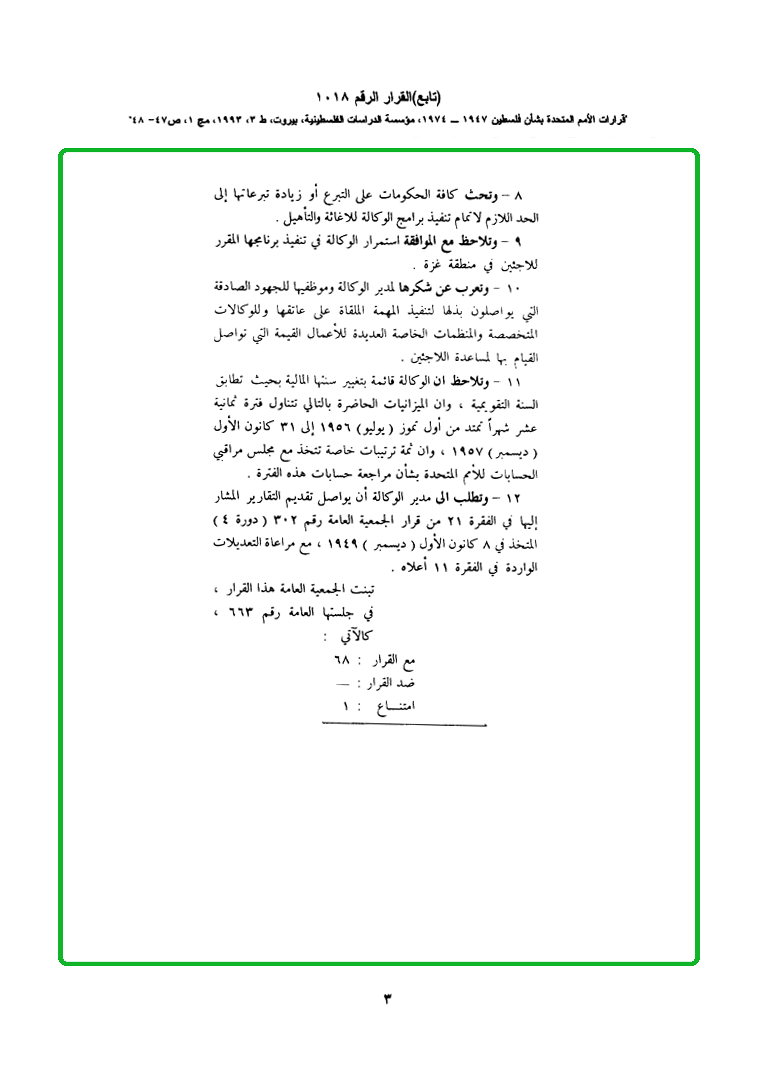 (تابع)القرار الرقم ١٠١٨
"قرارات الأمم المتحدة بشأن فلسطين ١٩٤٧ ـــ ١٩٧٤، مؤسسة الدراسات الفلسطينية، بيروت، ط ٣، ١٩٩٣، مج ١، ص٤٧- ٤٨"
٨ – وتحث كافة الحكومات على التبرع أو زيادة تبرعاتها إلى
الحد اللازم لاتمام تنفيذ برامج الوكالة للاغاثة والتأهيل .
٩ – وتلاحظ مع الموافقة استمرار الوكالة في تنفيذ برنامجها المقرر
للاجئين في منطقة غزة .
١٠ – وتعرب عن شكرها لمدير الوكالة وموظفيها للجهود الصادقة
التي يواصلون بذلها لتنفيذ المهمة الملقاة على عاتقها وللوكالات
المتخصصة والمنظمات الخاصة العديدة للأعمال القيمة التي تواصل
القيام بها لمساعدة اللاجئين .
١١ – وتلاحظ ان الوكالة قائمة بتغيير سنتها المالية بحيث تطابق
السنة التقويمية ، وان الميزانيات الحاضرة بالتالي تتناول فترة ثمانية
عشر شهراً تمتد من أول تموز ( يوليو) ١٩٥٦ إلى ٣١ كانون الأول
( ديسمبر ) ١٩٥٧ ، وان ثمة ترتيبات خاصة تتخذ مع مجلس مراقبي
الحسابات للأمم المتحدة بشأن مراجعة حسابات هذه الفترة .
١٢ – وتطلب الى مدير الوكالة أن يواصل تقديم التقارير المشار
إليها في الفقرة ٢١ من قرار الجمعية العامة رقم ٣٠٢ ( دورة ٤ )
المتخذ في ٨ كانون الأول ( ديسمبر ) ١٩٤٩ ، مع مراعاة التعديلات
الواردة في الفقرة ١١ أعلاه .
تبنت الجمعية العامة هذا القرار ،
في جلستها العامة رقم ٦٦٣ ،
كالآتي :
مع القرار : ٦٨
ضد القرار : —
امتنـــاع : ١
٣